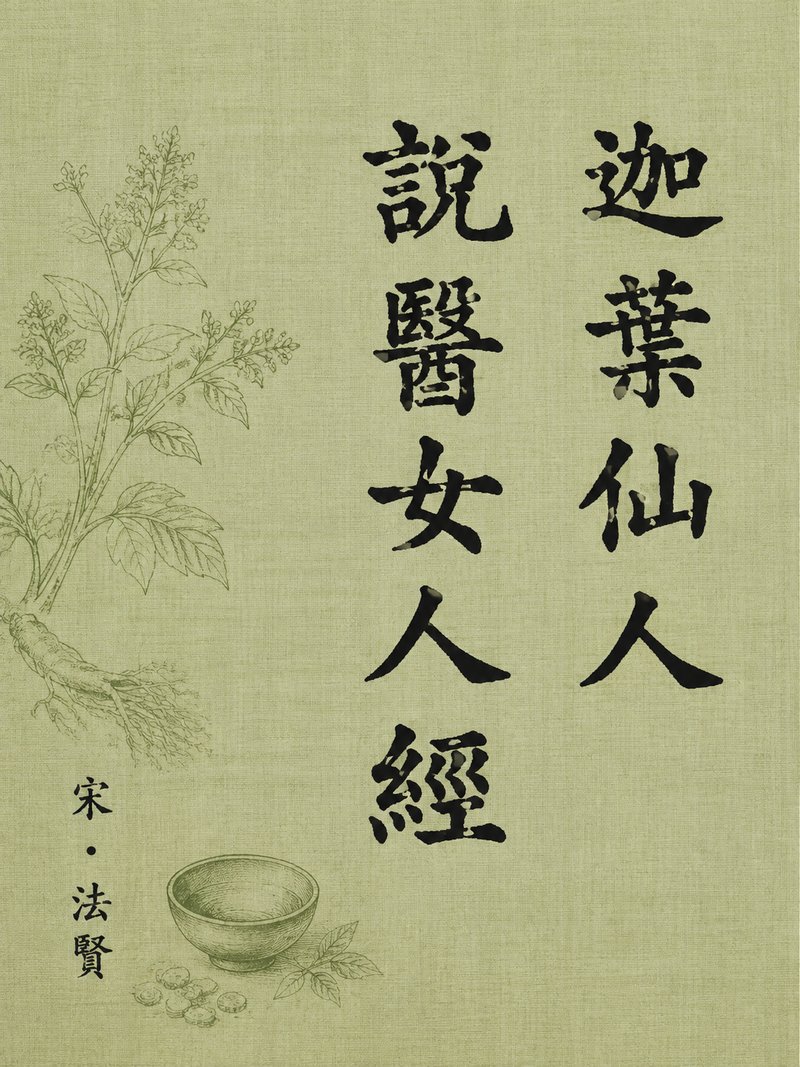 迦葉仙人
說醫女人經
宋・法賢